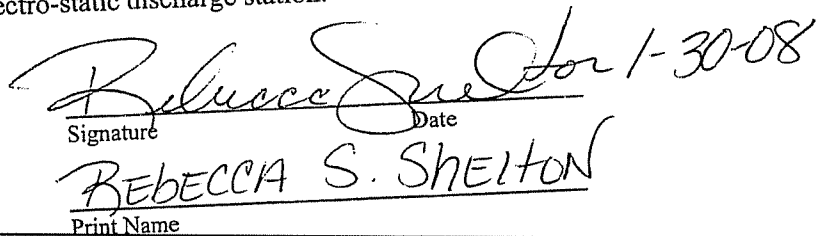 ectro-static discharge station.
Rebecca Shelton 1-30-08
Signature Date
REbECCA S. ShEltON
Print Name